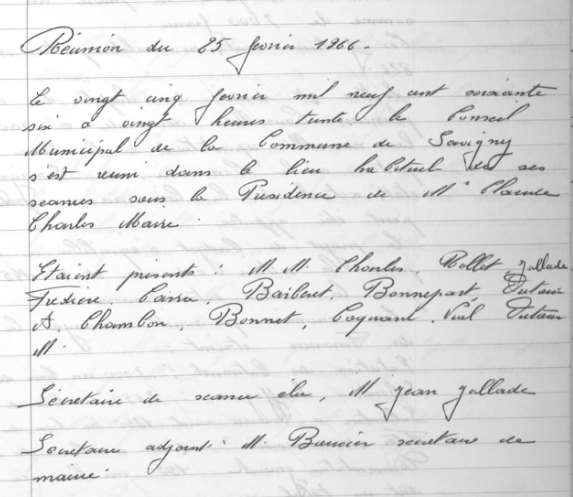 Réunion du 25 février 1966.
Le vingt cinq février mil neuf cent soixante
six à vingt heures trente le Conseil
Municipal de la Commune de Savigny
s'est réuni dans le lieu habituel de ses
séances sous la Présidence de Mr Claude
Charles Maire.
Etaient présents : M.M. Charles, Rollet, Jallade,
Fredière, Barberet, Bonnepart, Dutour
A, Chambon, Bonnet, Coquard, Vial, Dutour
M.
Secrétaire de séance élu, M Jean Jallade
Secrétaire adjoint : M. secrétaire de
mairie.